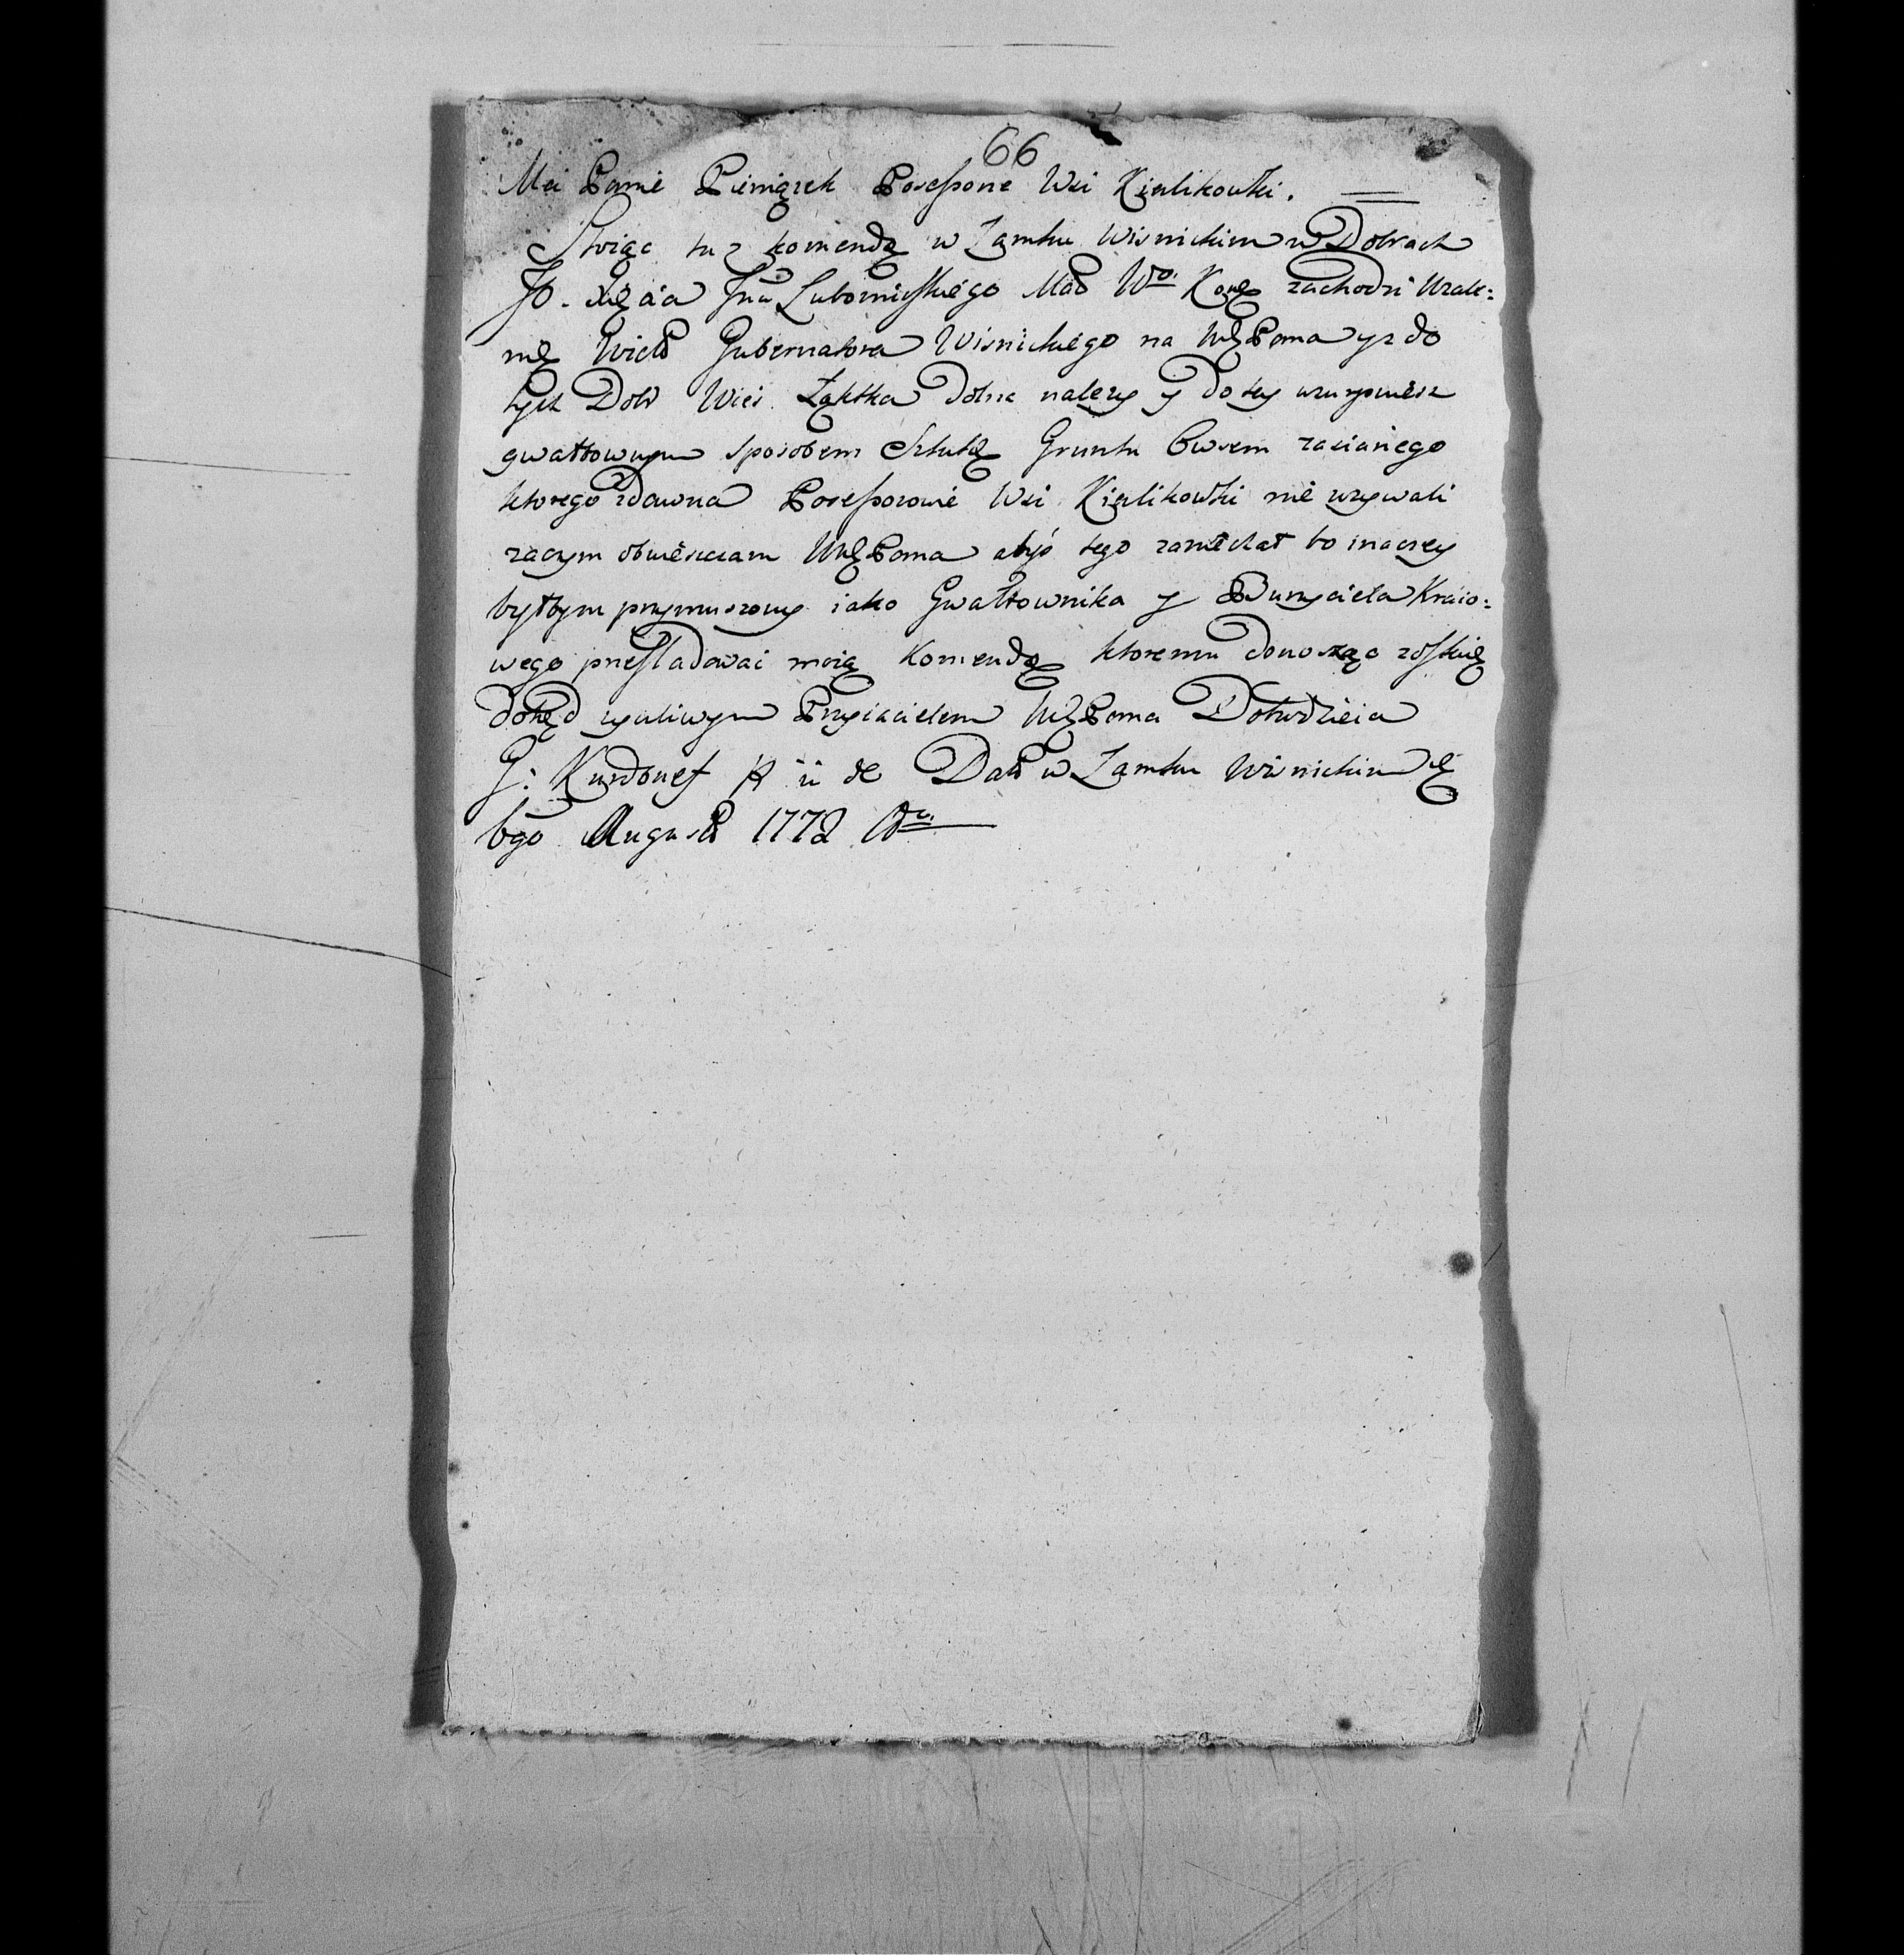 66
Mci Panie Pieniązek Possessorze Wsi Kięrlikowki.
Stoiąc tu z komendą w Zamku Wisnickim w Dobrach
JO. Xięcia Jna Lubomirskiego zachodzi Uzale:
nie Gubernatora Wisnickiego na WęPana yz do
tych Dobr Wies Łąktka Dolna nalezy y do tey uzurpuiesz
gwałtownym sposobem Sztukę Gruntu Owsem zasianego
ktorego zdawna Possessorowie Wsi Kięrlikowki nie uzywali
zaczym obwieszczam WęPana abyś tego zaniechał bo inaczey
byłbym przymuszony iako Gwałtownika y Burzyciela Kraio:
wego przesladować moią Komendą ktoremu donosząc zostaię
dotąd zyczliwym Przyiacielem WęPana Dobrodzieia
Dat w Zamku Wisnickim
6go August 1772